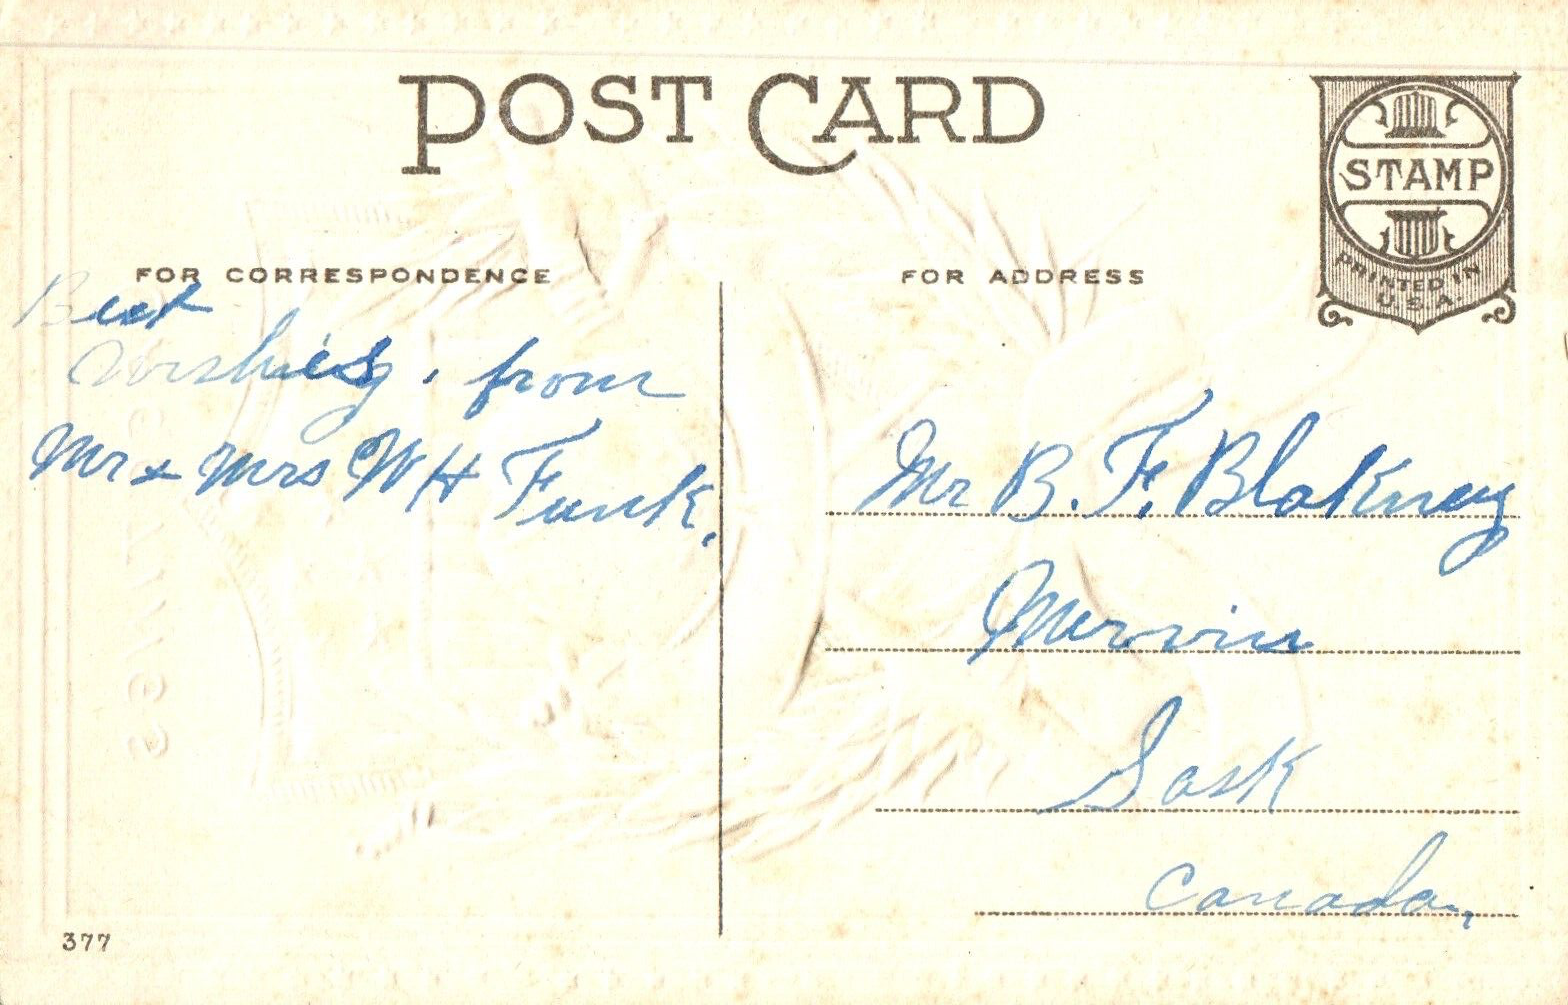 POST CARD
STAMP
PRINTED IN
U.S.A.
FOR CORRESPONDENCE
FOR ADDRESS
Best
Wishes, from
Mr & Mrs W H Funk.
Mr B. F. Blakney
Mervin
Sask
Canada,
377